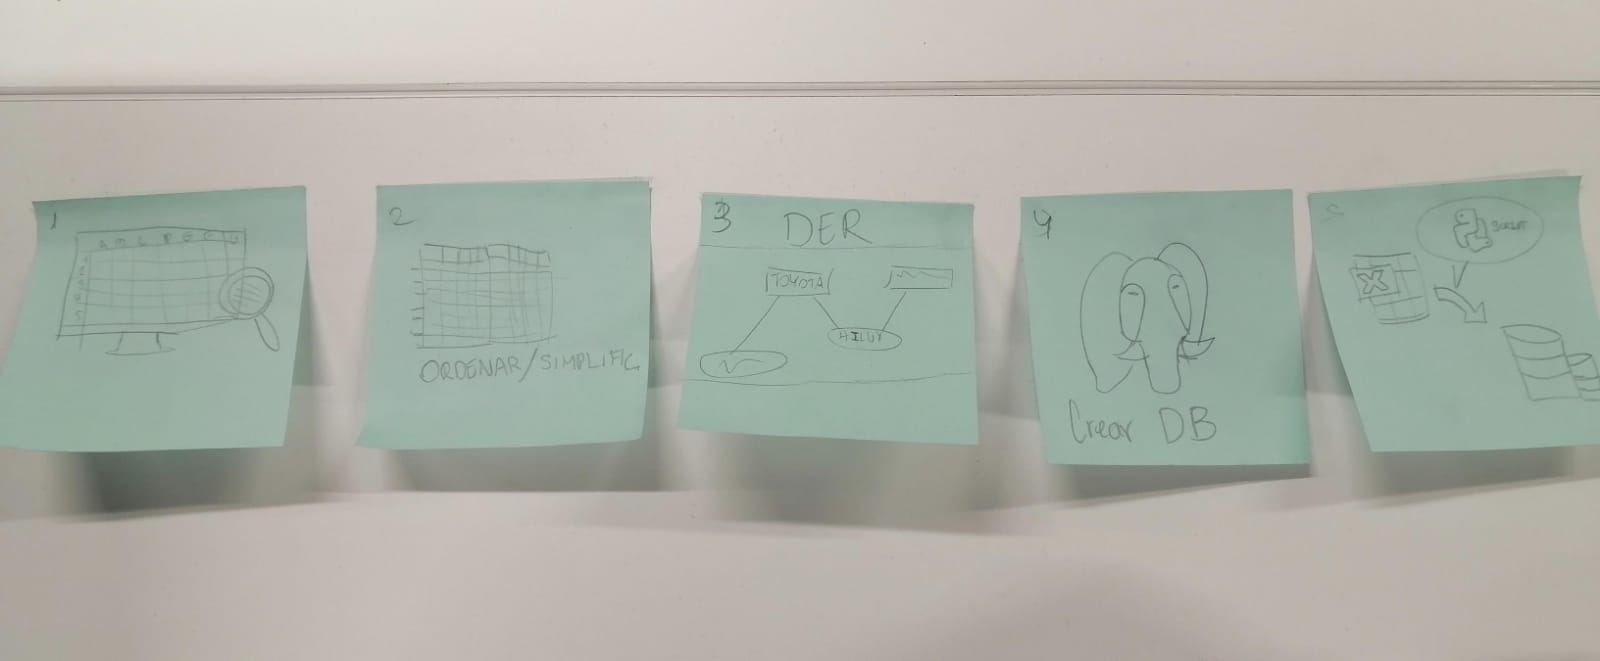 1
2
ORDENAR/SIMPLIFIC
3
DER
TOYOTA
HILUX
4
Crear DB
5
SCRIPT
X